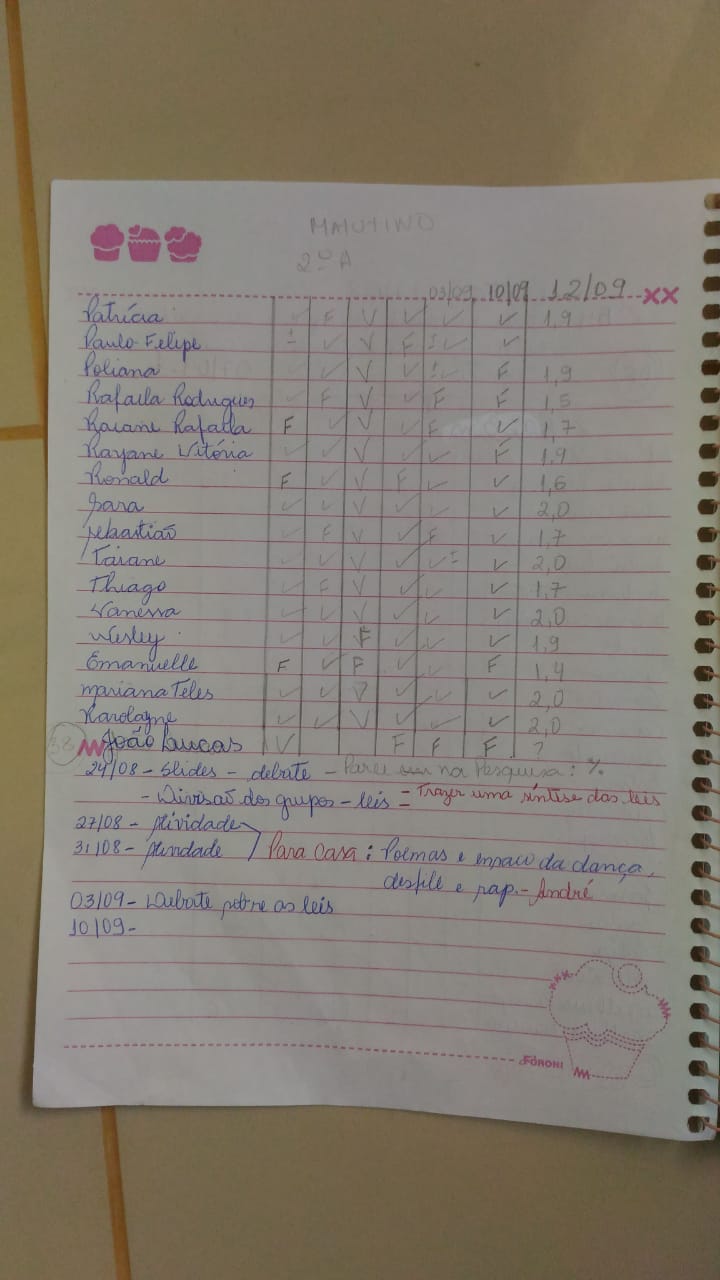 MAUTINO
2º A
03/09 10/09 12/09
Patrícia ✓ F V ✓ ✓ ✓ 1,9
Paulo Felipe ± ✓ V F ±✓ ✓
Poliana ✓ ✓ V ✓ ✓ F 1,9
Rafaella Rodrigues ✓ F V ✓ F F 1,5
Raiane Rafaella F ✓ V ✓ F ✓ 1,7
Rayane Vitória ✓ ✓ V ✓ ✓ F 1,9
Ronald F ✓ V F ✓ ✓ 1,6
Sara ✓ ✓ V ✓ ✓ ✓ 2,0
Sebastião ✓ F V ✓ F ✓ 1,7
Taiane ✓ ✓ V ✓ ✓± ✓ 2,0
Thiago ✓ F V ✓ ✓ ✓ 1,7
Vanessa ✓ ✓ V ✓ ✓ ✓ 2,0
Wesley ✓ ✓ F ✓ ✓ ✓ 1,9
Emanuelle F ✓ F ✓ ✓ F 1,4
Mariana Teles ✓ ✓ V ✓ ✓ ✓ 2,0
Karolayne ✓ ✓ V ✓ ✓ ✓ 2,0
38 João Lucas V F F F ?
24/08 - Slides - debate - Parei na Pesquisa: %
- Divisão dos grupos - leis = Trazer uma síntese das leis
27/08 - Atividade
31/08 - Atividade Para Casa: Poemas e espaço da dança,
desfile e rap. - André
03/09 - Debate sobre as leis
10/09 -
FORONI